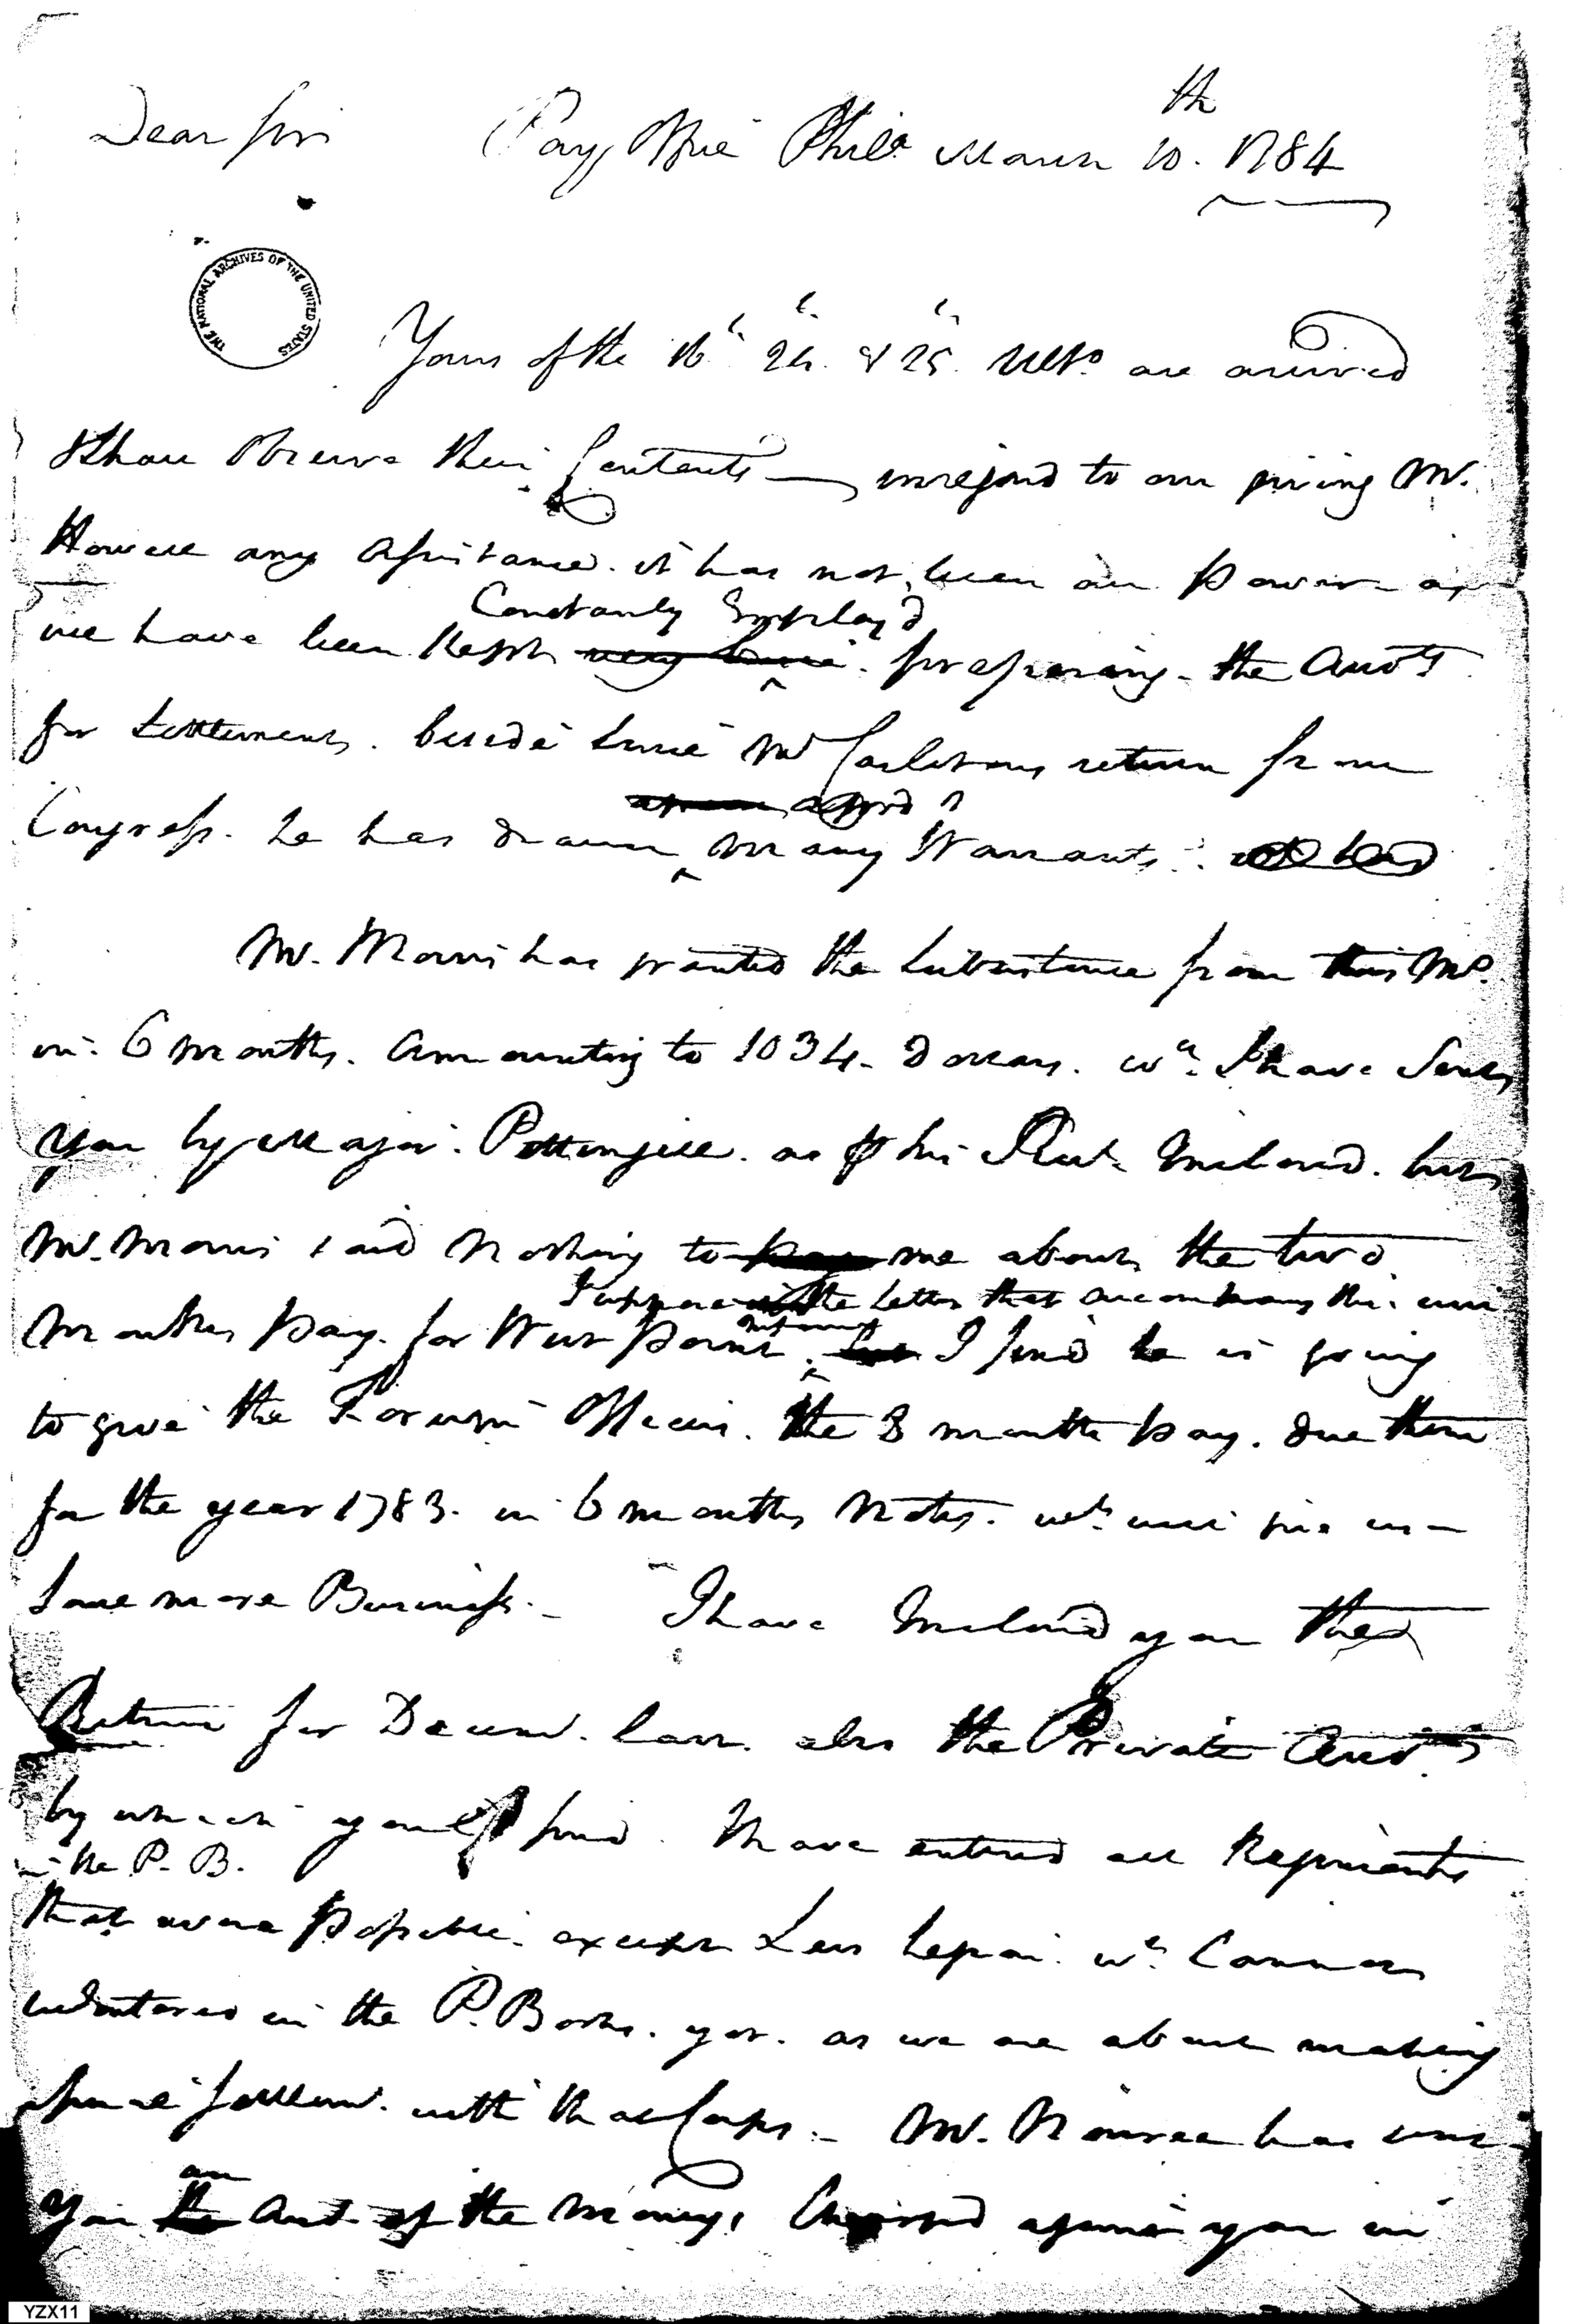 Dear Sir Pay Office Phila March 10th. 1784
THE NATIONAL ARCHIVES OF THE UNITED STATES
Yours of the 16th 24th & 25th Ulto. are arrived
& have Observe their Contents — in regard to our giving Mr.
Howell any Assistance. it has not been in our Power as
Constantly Employ'd
we have been Kept very busie preparing the Accots
for Settlement. beside since Mr Carletons return from
Congress. he has drawn many Warrants
Mr. Morris has granted the Subsistence from this Mo.
in 6 months. Amounting to 1034 Dollars. wch. I have Sent
you by Major Pettengill. as pr his Rect. Inclosed. but
Mr. Morris said Nothing to me about the two
I suppose the Letter that accompany this will
inform
Months Pay for West Point. but I find he is going
to give the Foreign Officers. the 8 months Pay. due them
for the year 1783. in 6 months Notes. wch. will give us
some more Business. I have Inclosed you the
Return for Decemr. last. also the Private Accots
by which you'll find I have entered all Regiments
in the P. B.
that were Possible. except Lees Legion. wh. Cannot
be Entered in the P. Books. yet. as we are about making
a final settlemt. with that Corps. Mr. Nourse has sent
an
you the Acct. of the Money, Charged against you in
YZX11